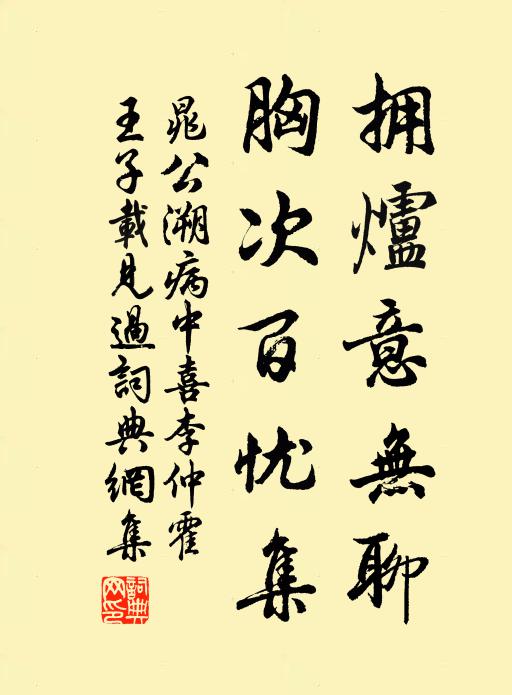 拥爐意無聊
胸次百忧集
晁公溯病中喜李仲霍
王子載見過詞典網集
詞典网印